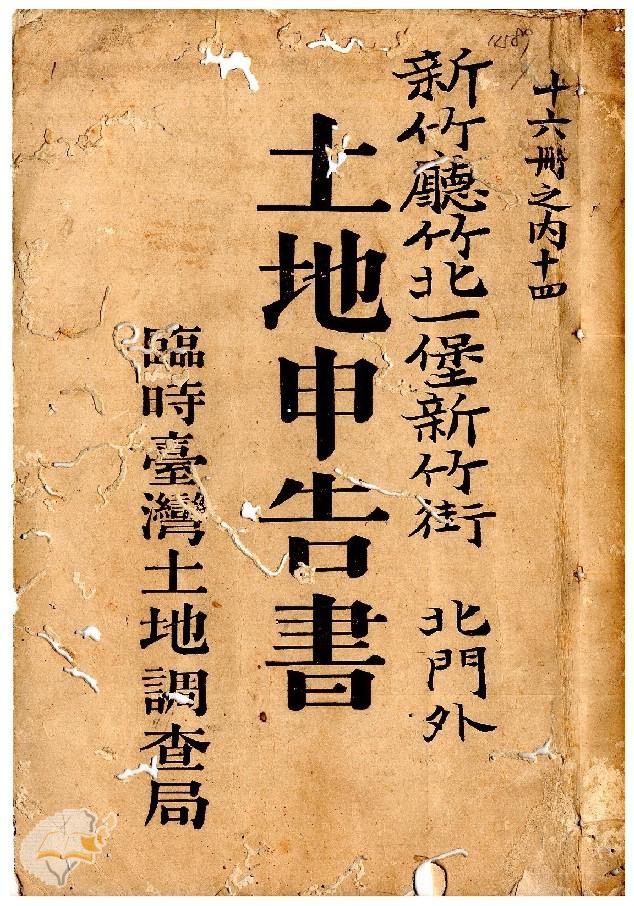 十六冊之内十四
新竹廳竹北一堡新竹街 北門外
土地申告書
臨時臺灣土地調查局